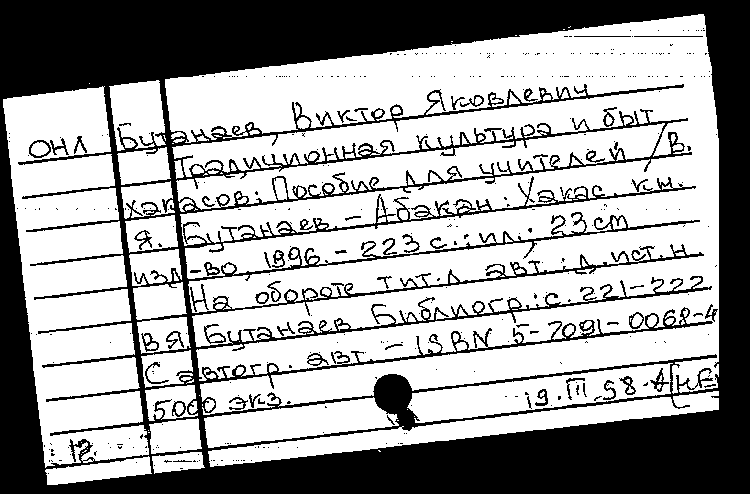 ОНЛ Бутанаев, Виктор Яковлевич
Традиционная культура и быт
хакасов: Пособие для учителей / В.
Я. Бутанаев. - Абакан: Хакас. кн.
изд-во, 1996. - 223 с.: ил.; 23 cm
На обороте тит. л. авт.: д. ист. н
В Я. Бутанаев. Библиогр.: с. 221-222
С автогр. авт. - ISBN 5-7091-0068-4
5000 экз. 19. III. 98 -
12